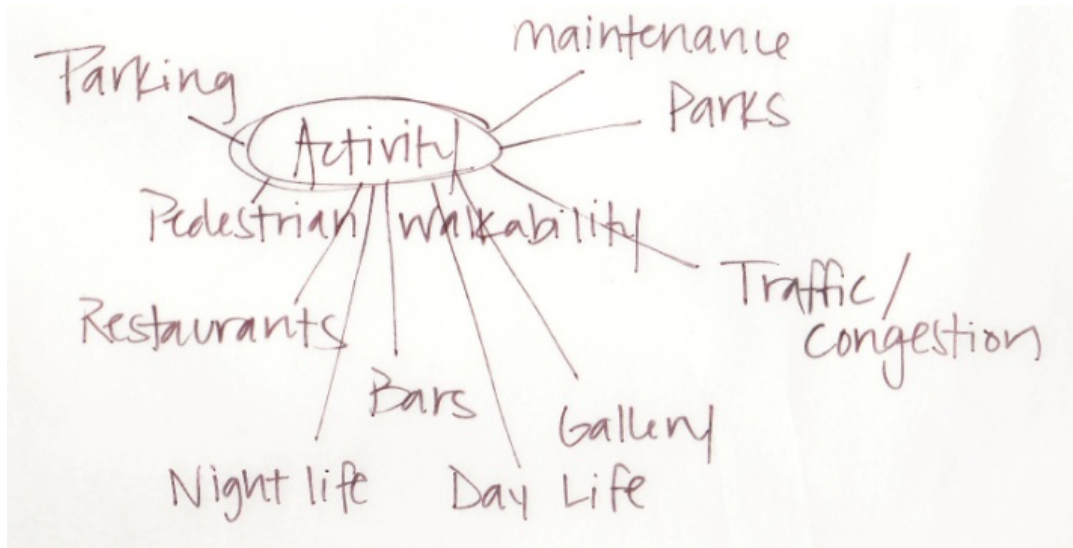 maintenance
Parking
Parks
Activity
Pedestrian walkability
Traffic/
congestion
Restaurants
Bars
Gallery
Night life
Day Life